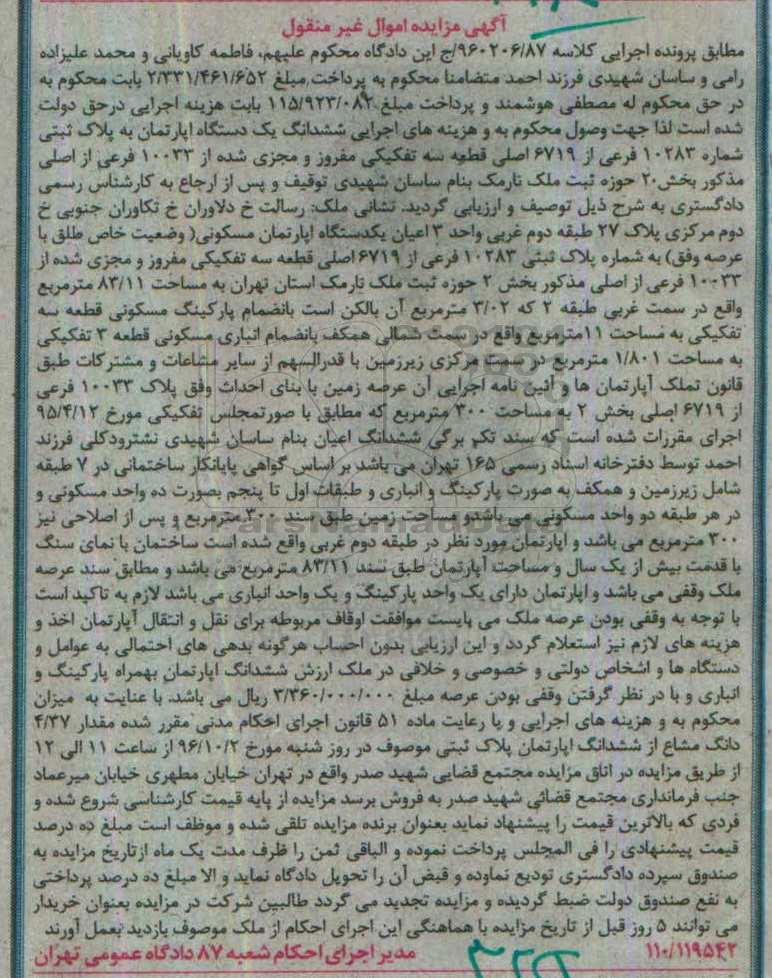 آگهی مزایده اموال غیر منقول
مطابق پرونده اجرایی کلاسه ۹۶۰۲۰۶/۸۷/ج این دادگاه محکوم علیهم، فاطمه کاویانی و محمد علیزاده
رامی و ساسان شهیدی فرزند احمد متضامنا محکوم به پرداخت مبلغ ۲/۳۳۱/۴۶۱/۶۵۲ بابت محکوم به
در حق محکوم له مصطفی هوشمند و پرداخت مبلغ ۱۱۵/۹۲۳/۰۸۲ بابت هزینه اجرایی درحق دولت
شده است لذا جهت وصول محکوم به و هزینه های اجرایی ششدانگ یک دستگاه اپارتمان به پلاک ثبتی
شماره ۱۰۲۸۳ فرعی از ۶۷۱۹ اصلی قطعه سه تفکیکی مفروز و مجزی شده از ۱۰۰۳۳ فرعی از اصلی
مذکور بخش۲۰ حوزه ثبت ملک نارمک بنام ساسان شهیدی توقیف و پس از ارجاع به کارشناس رسمی
دادگستری به شرح ذیل توصیف و ارزیابی گردید. نشانی ملک: رسالت خ دلاوران خ تکاوران جنوبی خ
دوم مرکزی پلاک ۲۷ طبقه دوم غربی واحد ۳ اعیان یکدستگاه اپارتمان مسکونی( وضعیت خاص طلق با
عرصه وقف) به شماره پلاک ثبتی ۱۰۲۸۳ فرعی از ۶۷۱۹ اصلی قطعه سه تفکیکی مفروز و مجزی شده از
۱۰۰۳۳ فرعی از اصلی مذکور بخش ۲ حوزه ثبت ملک نارمک استان تهران به مساحت ۸۳/۱۱ مترمربع
واقع در سمت غربی طبقه ۲ که ۳/۰۲ مترمربع آن بالکن است بانضمام پارکینگ مسکونی قطعه سه
تفکیکی به مساحت ۱۱مترمربع واقع در سمت شمالی همکف بانضمام انباری مسکونی قطعه ۳ تفکیکی
به مساحت ۱/۸۰۱ مترمربع در سمت مرکزی زیرزمین با قدرالسهم از سایر مشاعات و مشترکات طبق
قانون تملک آپارتمان ها و آئین نامه اجرایی آن عرصه زمین با بنای احداث وقق پلاک ۱۰۰۳۳ فرعی
از ۶۷۱۹ اصلی بخش ۲ به مساحت ۳۰۰ مترمربع که مطابق با صورتمجلس تفکیکی مورخ ۹۵/۴/۱۲
اجرای مقررات شده است که سند تکم برگی ششدانگ اعیان بنام ساسان شهیدی نشترودکلی فرزند
احمد توسط دفترخانه اسناد رسمی ۱۶۵ تهران می باشد بر اساس گواهی پایانکار ساختمانی در ۷ طبقه
شامل زیرزمین و همکف به صورت پارکینگ و انباری و طبقات اول تا پنجم بصورت ده واحد مسکونی و
در هر طبقه دو واحد مسکونی می باشدو مساحت زمین طبق سند ۳۰۰ مترمربع و پس از اصلاحی نیز
۳۰۰ مترمربع می باشد و اپارتمان مورد نظر در طبقه دوم غربی واقع شده است ساختمان با نمای سنگ
با قدمت بیش از یک سال و مساحت آپارتمان طبق سند ۸۳/۱۱ مترمربع می باشد و مطابق سند عرصه
ملک وقفی می باشد و اپارتمان دارای یک واحد پارکینگ و یک واحد انباری می باشد لازم به تاکید است
با توجه به وقفی بودن عرصه ملک می بایست موافقت اوقاف مربوطه برای نقل و انتقال آپارتمان اخذ و
هزینه های لازم نیز استعلام گردد و این ارزیابی بدون احساب هرگونه بدهی های احتمالی به عوامل و
دستگاه ها و اشخاص دولتی و خصوصی و خلافی در ملک ارزش ششدانگ اپارتمان بهمراه پارکینگ و
انباری و با در نظر گرفتن وقفی بودن عرصه مبلغ ۳/۳۶۰/۰۰۰/۰۰۰ ریال می باشد. با عنایت به میزان
محکوم به و هزینه های اجرایی و با رعایت ماده ۵۱ قانون اجرای احکام مدنی مقرر شده مقدار ۴/۳۷
دانگ مشاع از ششدانگ اپارتمان پلاک ثبتی موصوف در روز شنبه مورخ ۹۶/۱۰/۲ از ساعت ۱۱ الی ۱۲
از طریق مزایده در اتاق مزایده مجتمع قضایی شهید صدر واقع در تهران خیابان مطهری خیابان میرعماد
جنب فرمانداری مجتمع قضائی شهید صدر به فروش برسد مزایده از پایه قیمت کارشناسی شروع شده و
فردی که بالاترین قیمت را پیشنهاد نماید بعنوان برنده مزایده تلقی شده و موظف است مبلغ ده درصد
قیمت پیشنهادی را فی المجلس پرداخت نموده و الباقی ثمن را ظرف مدت یک ماه ازتاریخ مزایده به
صندوق سپرده دادگستری تودیع نماوده و قبض آن را تحویل دادگاه نماید و الا مبلغ ده درصد پرداختی
به نفع صندوق دولت ضبط گردیده و مزایده تجدید می گردد طالبین شرکت در مزایده بعنوان خریدار
می توانند ۵ روز قبل از تاریخ مزایده با هماهنگی این اجرای احکام از ملک موصوف بازدید بعمل آورند
۱۱۰/۱۱۹۵۴۲ مدیر اجرای احکام شعبه ۸۷ دادگاه عمومی تهران